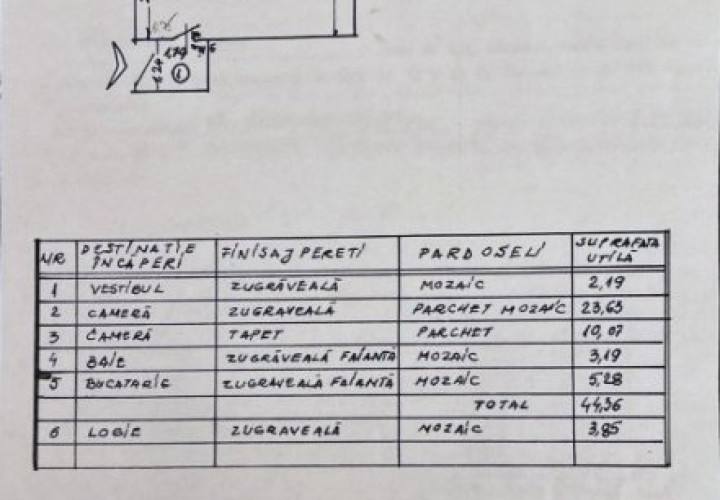 1
NR DESTINAȚIE ÎNCĂPERI FINISAJ PEREȚI PARDOSELI SUPRAFAȚA UTILĂ
1 VESTIBUL ZUGRĂVEALĂ MOZAIC 2,19
2 CAMERĂ ZUGRAVEALĂ PARCHET MOZAIC 23,63
3 CAMERĂ TAPET PARCHET 10,07
4 BAIE ZUGRĂVEALĂ FAIANȚĂ MOZAIC 3,19
5 BUCATARIE ZUGRAVEALĂ FAIANȚĂ MOZAIC 5,28
TOTAL 44,36
6 LOGIE ZUGRAVEALĂ MOZAIC 3,85